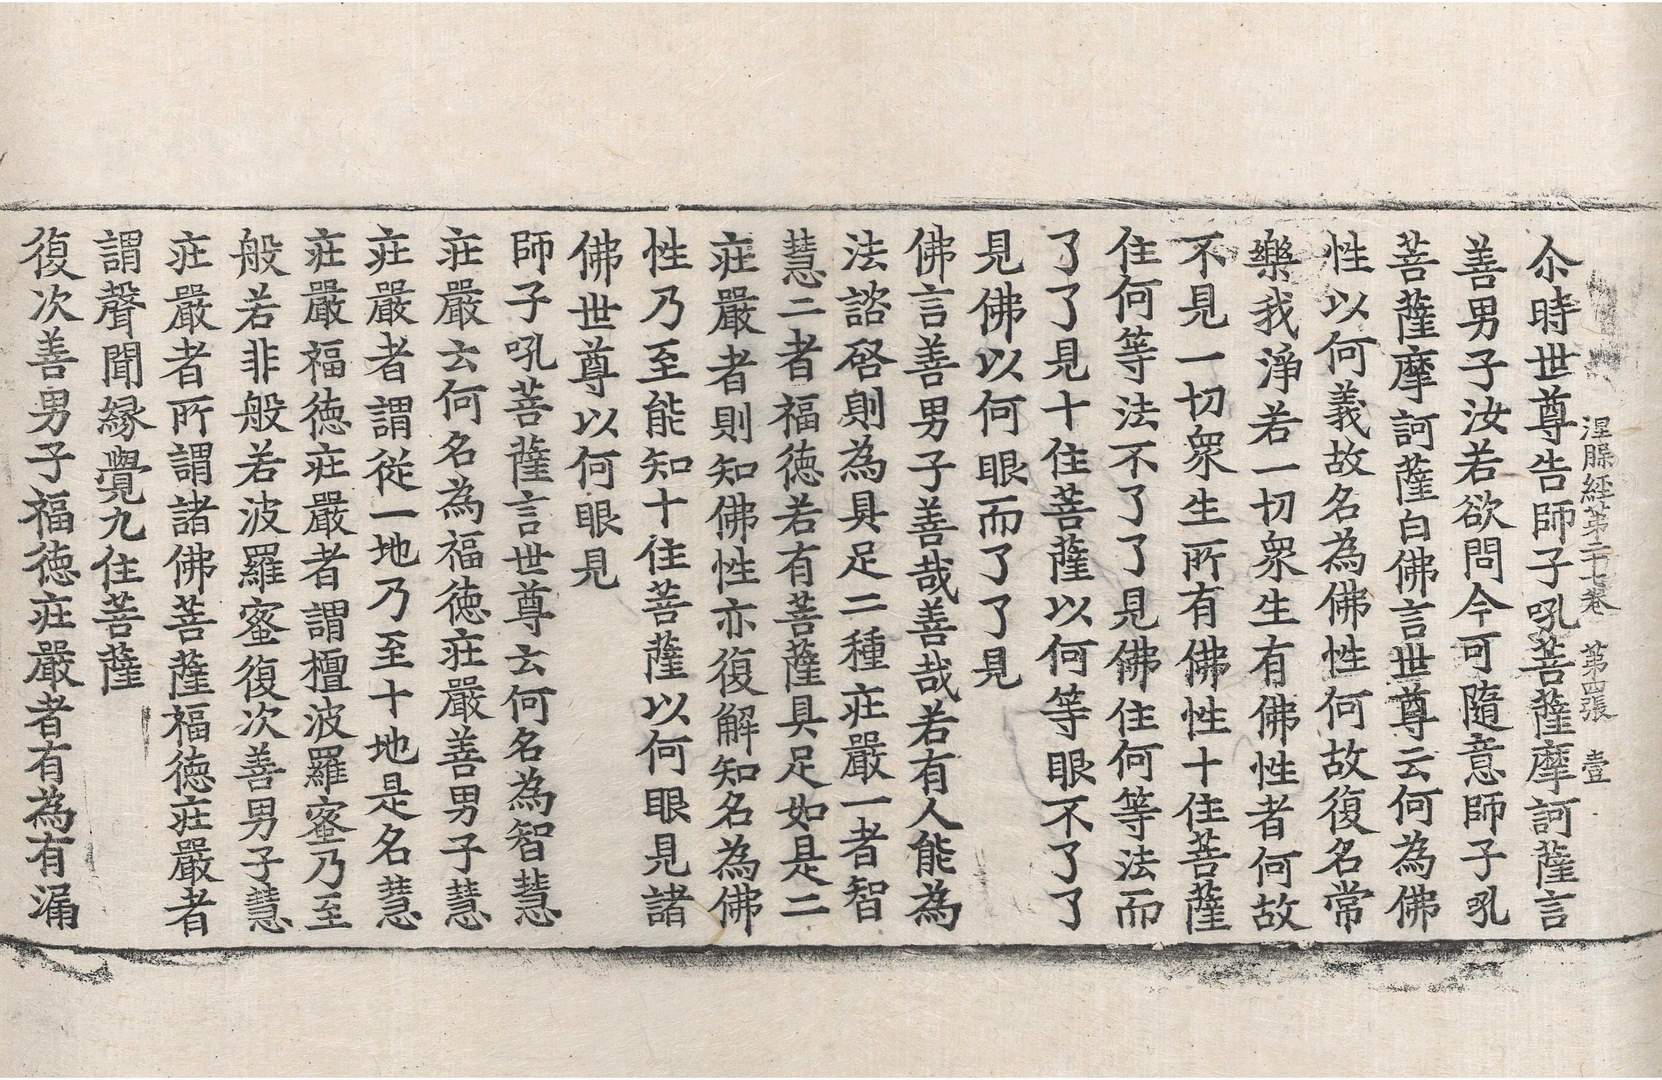 涅槃經第二十七卷 第四張 壹
尒時世尊告師子吼菩薩摩訶薩言
善男子汝若欲問今可隨意師子吼
菩薩摩訶薩白佛言世尊云何為佛
性以何義故名為佛性何故復名常
樂我淨若一切衆生有佛性者何故
不見一切衆生所有佛性十住菩薩
住何等法不了了見佛住何等法而
了了見十住菩薩以何等眼不了了
見佛以何眼而了了見
佛言善男子善哉善哉若有人能為
法諮啓則為具足二種莊嚴一者智
慧二者福德若有菩薩具足如是二
莊嚴者則知佛性亦復解知名為佛
性乃至能知十住菩薩以何眼見諸
佛世尊以何眼見
師子吼菩薩言世尊云何名為智慧
莊嚴云何名為福德莊嚴善男子慧
莊嚴者謂從一地乃至十地是名慧
莊嚴福德莊嚴者謂檀波羅蜜乃至
般若非般若波羅蜜復次善男子慧
莊嚴者所謂諸佛菩薩福德莊嚴者
謂聲聞緣覺九住菩薩
復次善男子福德莊嚴者有為有漏